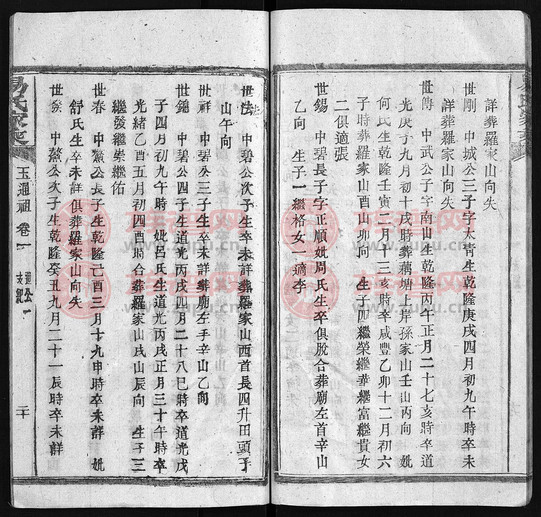 詳葬羅家山向失
世剛 中城公三子字太青生乾隆庚戌四月初九午時卒未
詳葬羅家山向失
世傳 中武公子字南山生乾隆丙午正月二十七亥時卒道
光庚子九月初十戌時葬藕塘上岸孫家山壬山丙向 妣
何氏生乾隆壬寅二月十三亥時卒咸豐乙卯十二月初六
子時葬羅家山酉山卯向 生子四繼榮繼華繼富繼貴女
二俱適張
世錫 中碧長子字正順妣周氏生卒俱脫合葬廟左首辛山
乙向 生子一繼格女一適李
世法 中碧公次子生卒未詳葬羅家山西首長四升田頭子
山午向
世祥 中碧公三子生卒未詳葬廟左手辛山乙向
世鎴 中碧公四子生道光丙戌四月二十八巳時卒道光戊
子四月初九午時 妣呂氏生道光丙戌正月三十午時卒
光緒乙酉五月初四酉時合葬羅家山戌山辰向 生子三
繼發繼崇繼佑
世春 中葉公長子生乾隆己酉三月十九申時卒未詳 妣
舒氏生卒未詳俱葬羅家山向失
世癸 中葉公次子生乾隆癸丑九月二十一辰時卒未詳
易氏家乘
玉通祖 卷二
二十